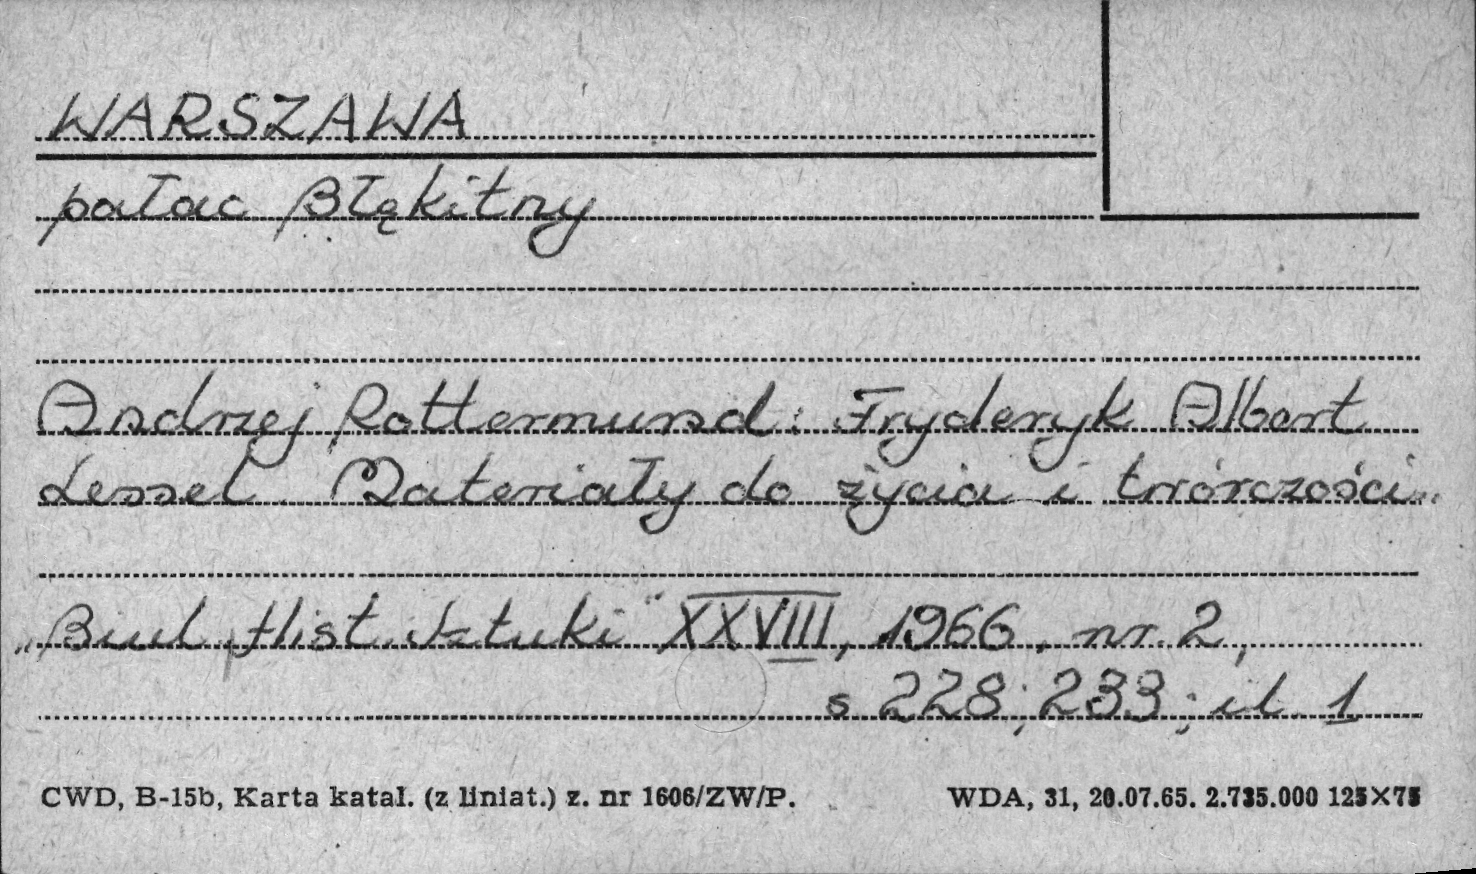 WARSZAWA
pałac Błękitny
Andrzej Rottermund: Fryderyk Albert
Lessel. Materiały do życia i twórczości..
„Biul. Hist. Sztuki" XXVIII, 1966, nr. 2,
s 228; 233; il. 1
CWD, B-15b, Karta katal. (z liniat.) z. nr 1606/ZW/P. WDA, 31, 20.07.65. 2.735.000 125×75